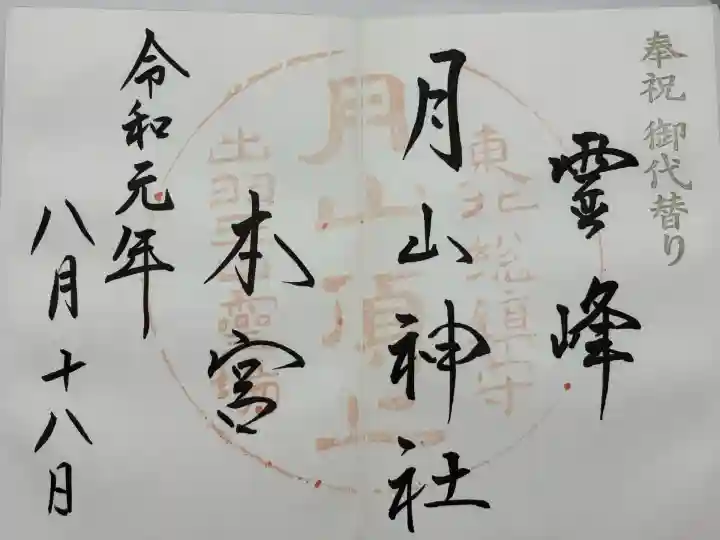 奉祝 御代替り
霊峰
月山神社
本宮
令和元年
八月十八日
東北総鎮守
月山頂上
出羽三山霊場